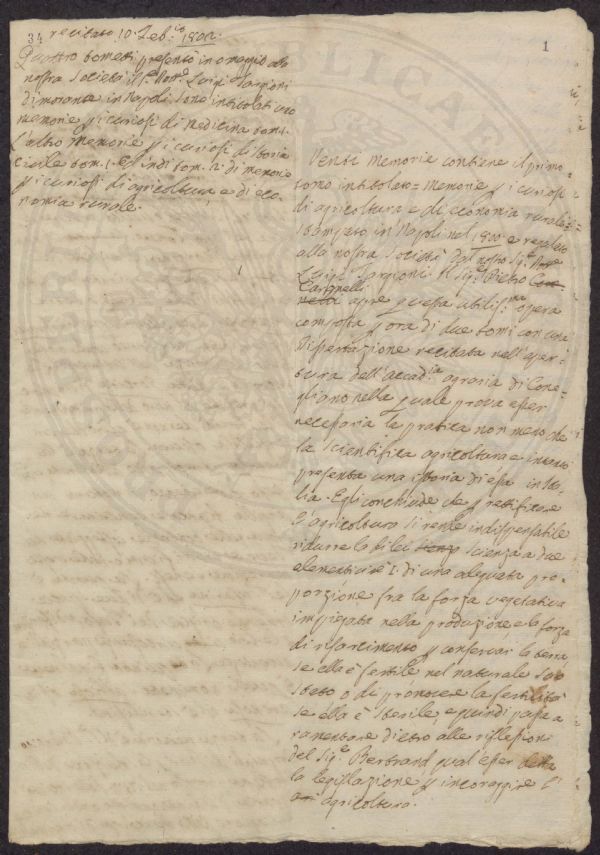 34 recitato 10. Feb.io 1802.
Quattro tometti presentò in omaggio alla
nostra Società il Sig.r Dott.e Luigi Targioni
dimorante in Napoli. Sono intitolati uno
memorie p i curiosi di Medicina tom. 1.
L'altro Memorie p i curiosi di Storia
Civile tom. 1. ed indi tom. 2. di memorie
p i curiosi di agricoltura, e di eco-
nomia rurale.
1
Venti memorie contiene il primo
tomo intitolato = Memorie p i curiosi
di agricoltura e di economia rurale =
Stampato in Napoli nel 1800 e regalato
alla nostra Società dal nostro Sig.r Dott.e
Luigi Targioni. Il Sig.r Pietro
Caronelli
apre questa utiliss.ma opera
composta p ora di due tomi con una
Dissertazione recitata nell'aper-
tura dell'Accad.ia agraria di Cone-
gliano nella quale prova esser
necessaria la pratica non meno che
la scientifica agricoltura e intanto
presenta una istoria di essa in Ita-
lia. Egli conchiude che p rettificare
l'agricoltura si rende indispensabile
ridurre la di lei scienza a due
elementi cioè 1. di una adequata pro-
porzione fra la forza vegetativa
impiegata nella produzione, e la forza
di risarcimento p conservar la terra
se ella è fertile nel naturale suo
stato o di promovere la fertilità
se ella è sterile, e quindi passa a
ramentare dietro alle riflessioni
del Sig.e Bertrand qual esser debba
la legislazione p incoraggire l'
agricoltura.